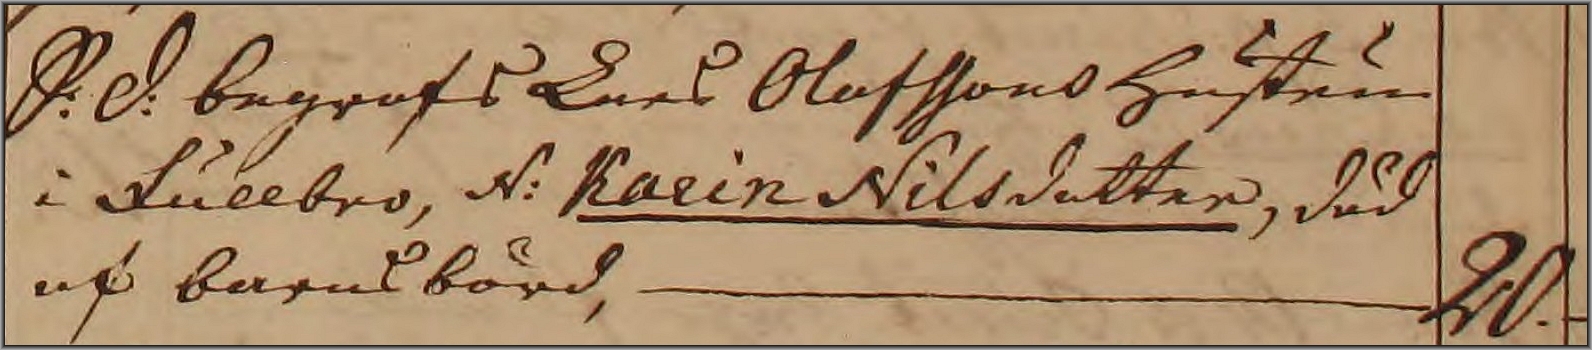 S. D. begrofs Lars Olofssons Hustru
i Kullebro, N: Karin Nilsdotter, död
af barnsbörd, 20.